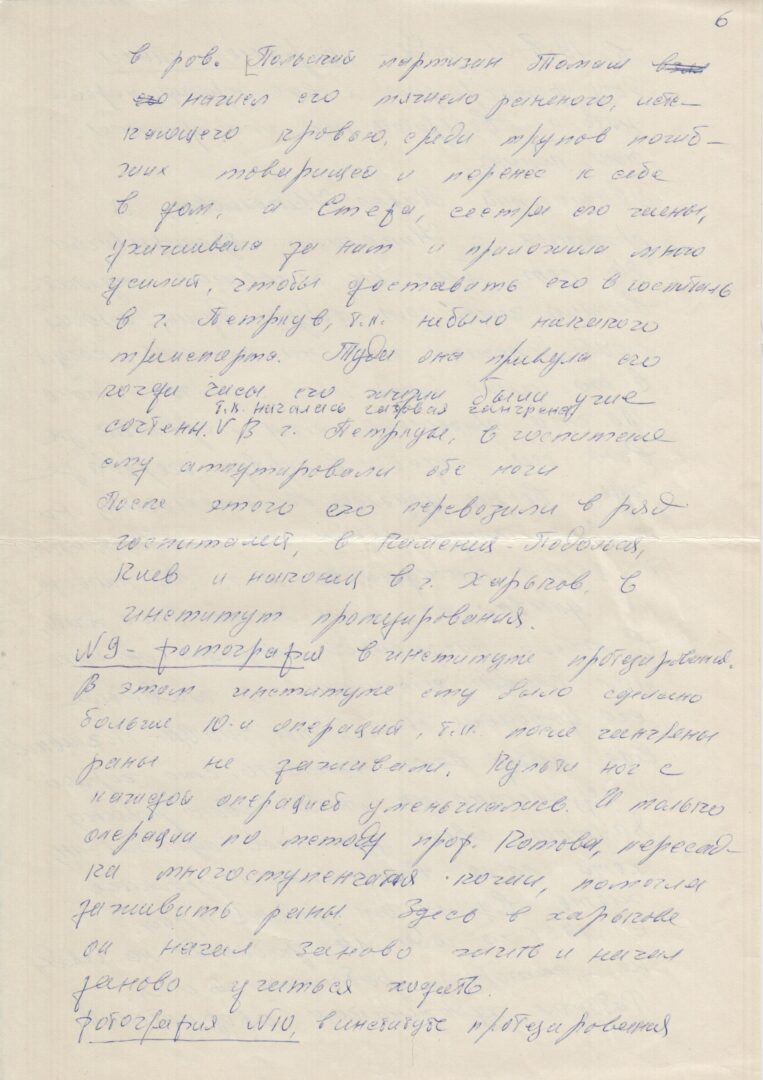 6
в ров. Польский партизан Томаш взял
его нашел его тяжело раненого, исте-
кающего кровью, среди трупов погиб-
ших товарищей и перенес к себе
в дом, а Стефа, сестра его жены,
ухаживала за ним и приложила много
усилий, чтобы доставить его в госпиталь
в г. Петркув, т.к. небыло никакого
транспорта. Туда она привезла его
когда часы его жизни были уже
т.к. началась газовая гангрена
сочтены. V В г. Петркуве, в госпитале
ему ампутировали обе ноги
После этого его перевозили в ряд
госпиталей, в Каменец-Подольск,
Киев и наконец в г. Харьков, в
институт протезирования.
N9 - фотография в институте протезирования.
В этом институте ему было сделано
больше 10-и операций, т.к. после гангрены
раны не заживали. Культи ног с
каждой операцией уменьшались. И только
операции по методу проф. Котова, пересад-
ка многоступенчатая кожи, помогла
заживить раны. Здесь в харькове
он начал заново жить и начал
заново учиться ходить.
фотография N10, в институте протезирования